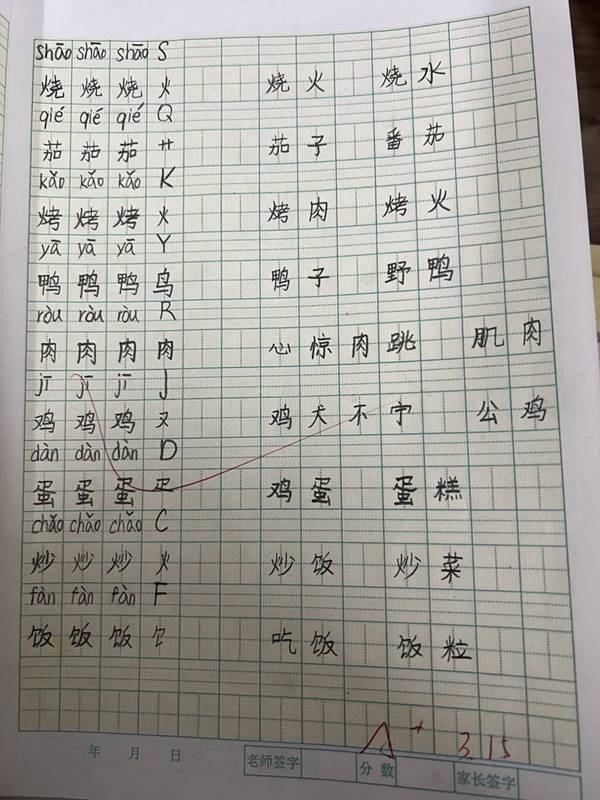 shāo shāo shāo S
烧 烧 烧 火 烧火 烧水
qié qié qié Q
茄 茄 茄 艹 茄子 番茄
kǎo kǎo kǎo K
烤 烤 烤 火 烤肉 烤火
yā yā yā Y
鸭 鸭 鸭 鸟 鸭子 野鸭
ròu ròu ròu R
肉 肉 肉 肉 心惊肉跳 肌肉
jī jī jī J
鸡 鸡 鸡 又 鸡犬不宁 公鸡
dàn dàn dàn D
蛋 蛋 蛋 疋 鸡蛋 蛋糕
chǎo chǎo chǎo C
炒 炒 炒 火 炒饭 炒菜
fàn fàn fàn F
饭 饭 饭 饣 吃饭 饭粒
A+ 3.15
年 月 日 老师签字 分数 家长签字